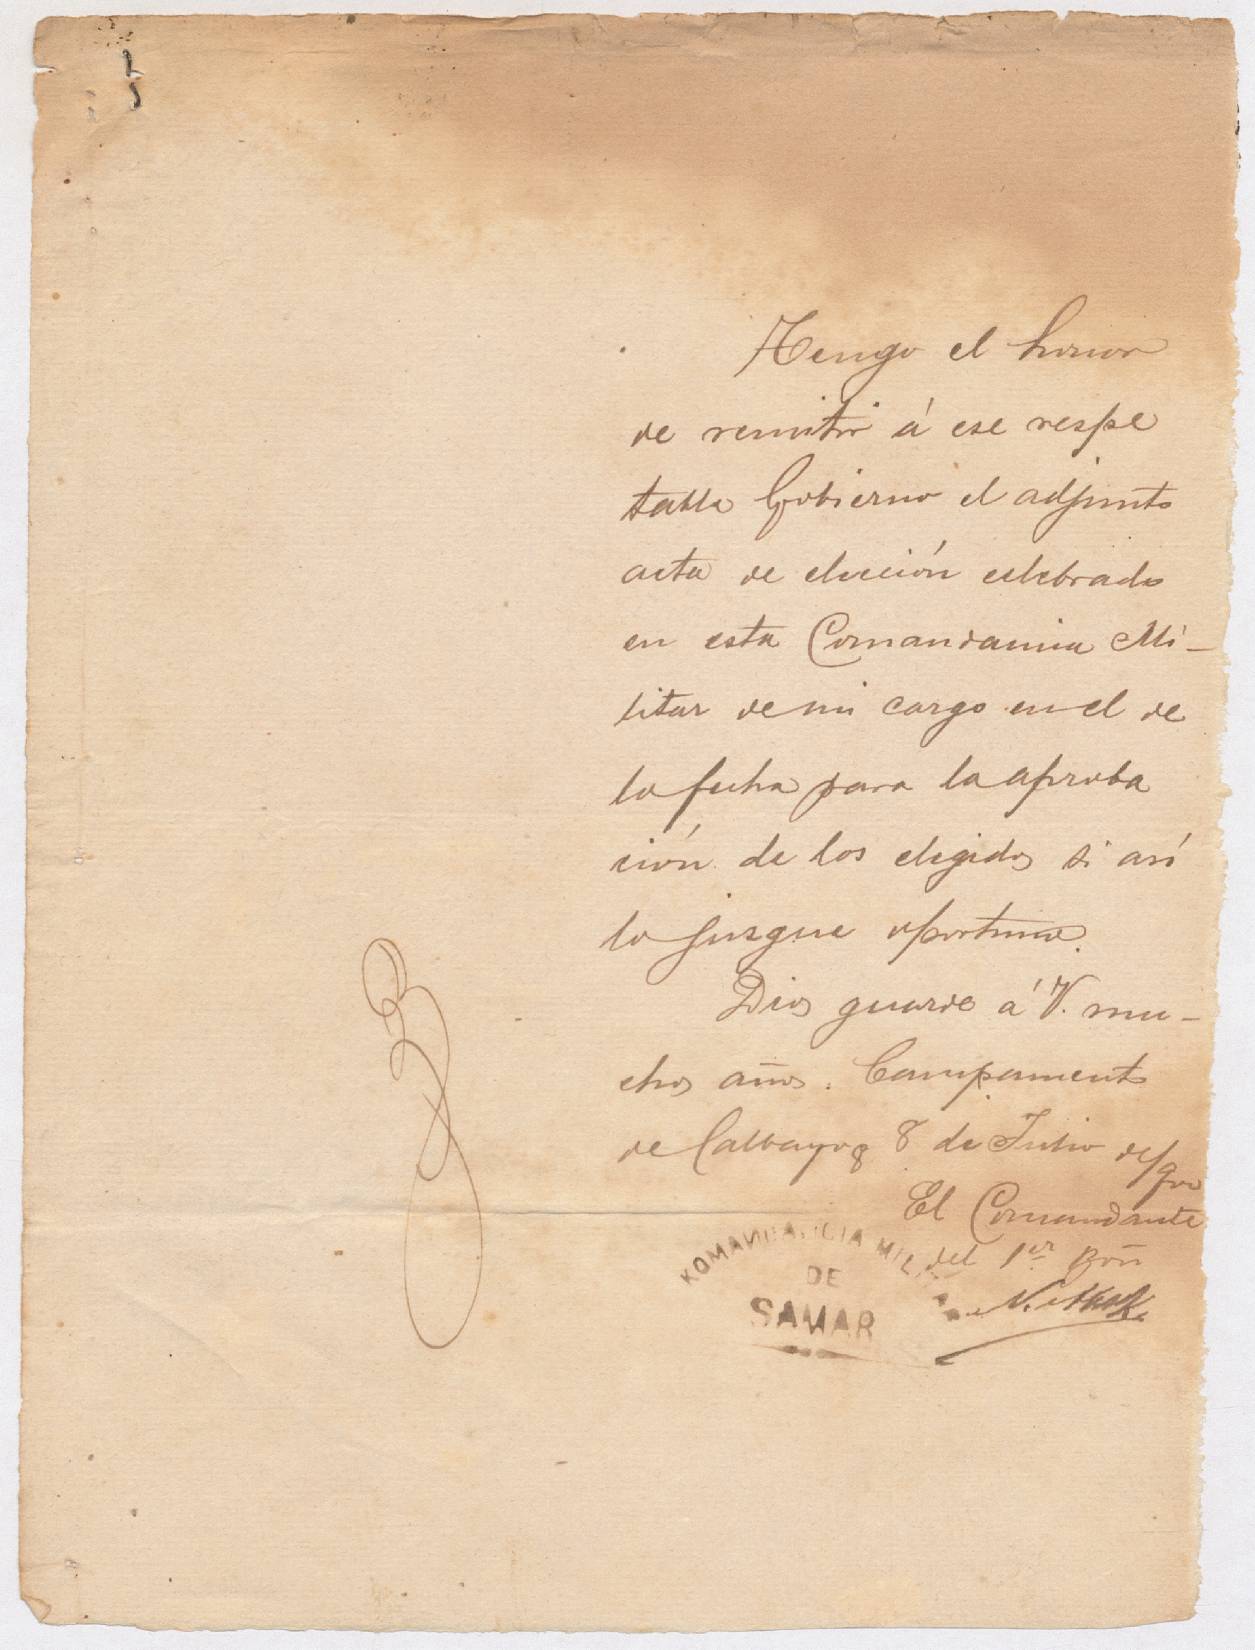 Tengo el honor
de remitir á ese respe
table Gobierno el adjunto
acta de elección celebrado
en esta Comandancia Mi-
litar de mi cargo en el de
la fecha para la aproba
ción de los elegidos si así
lo jusgue oportuno.
Dios guarde á V. mu-
chos años. Campamento
de Calbayog 8 de Julio de
El Comandante
del 1er Bón
N.
KOMANDANCIA MILITAR
DE
SAMAR